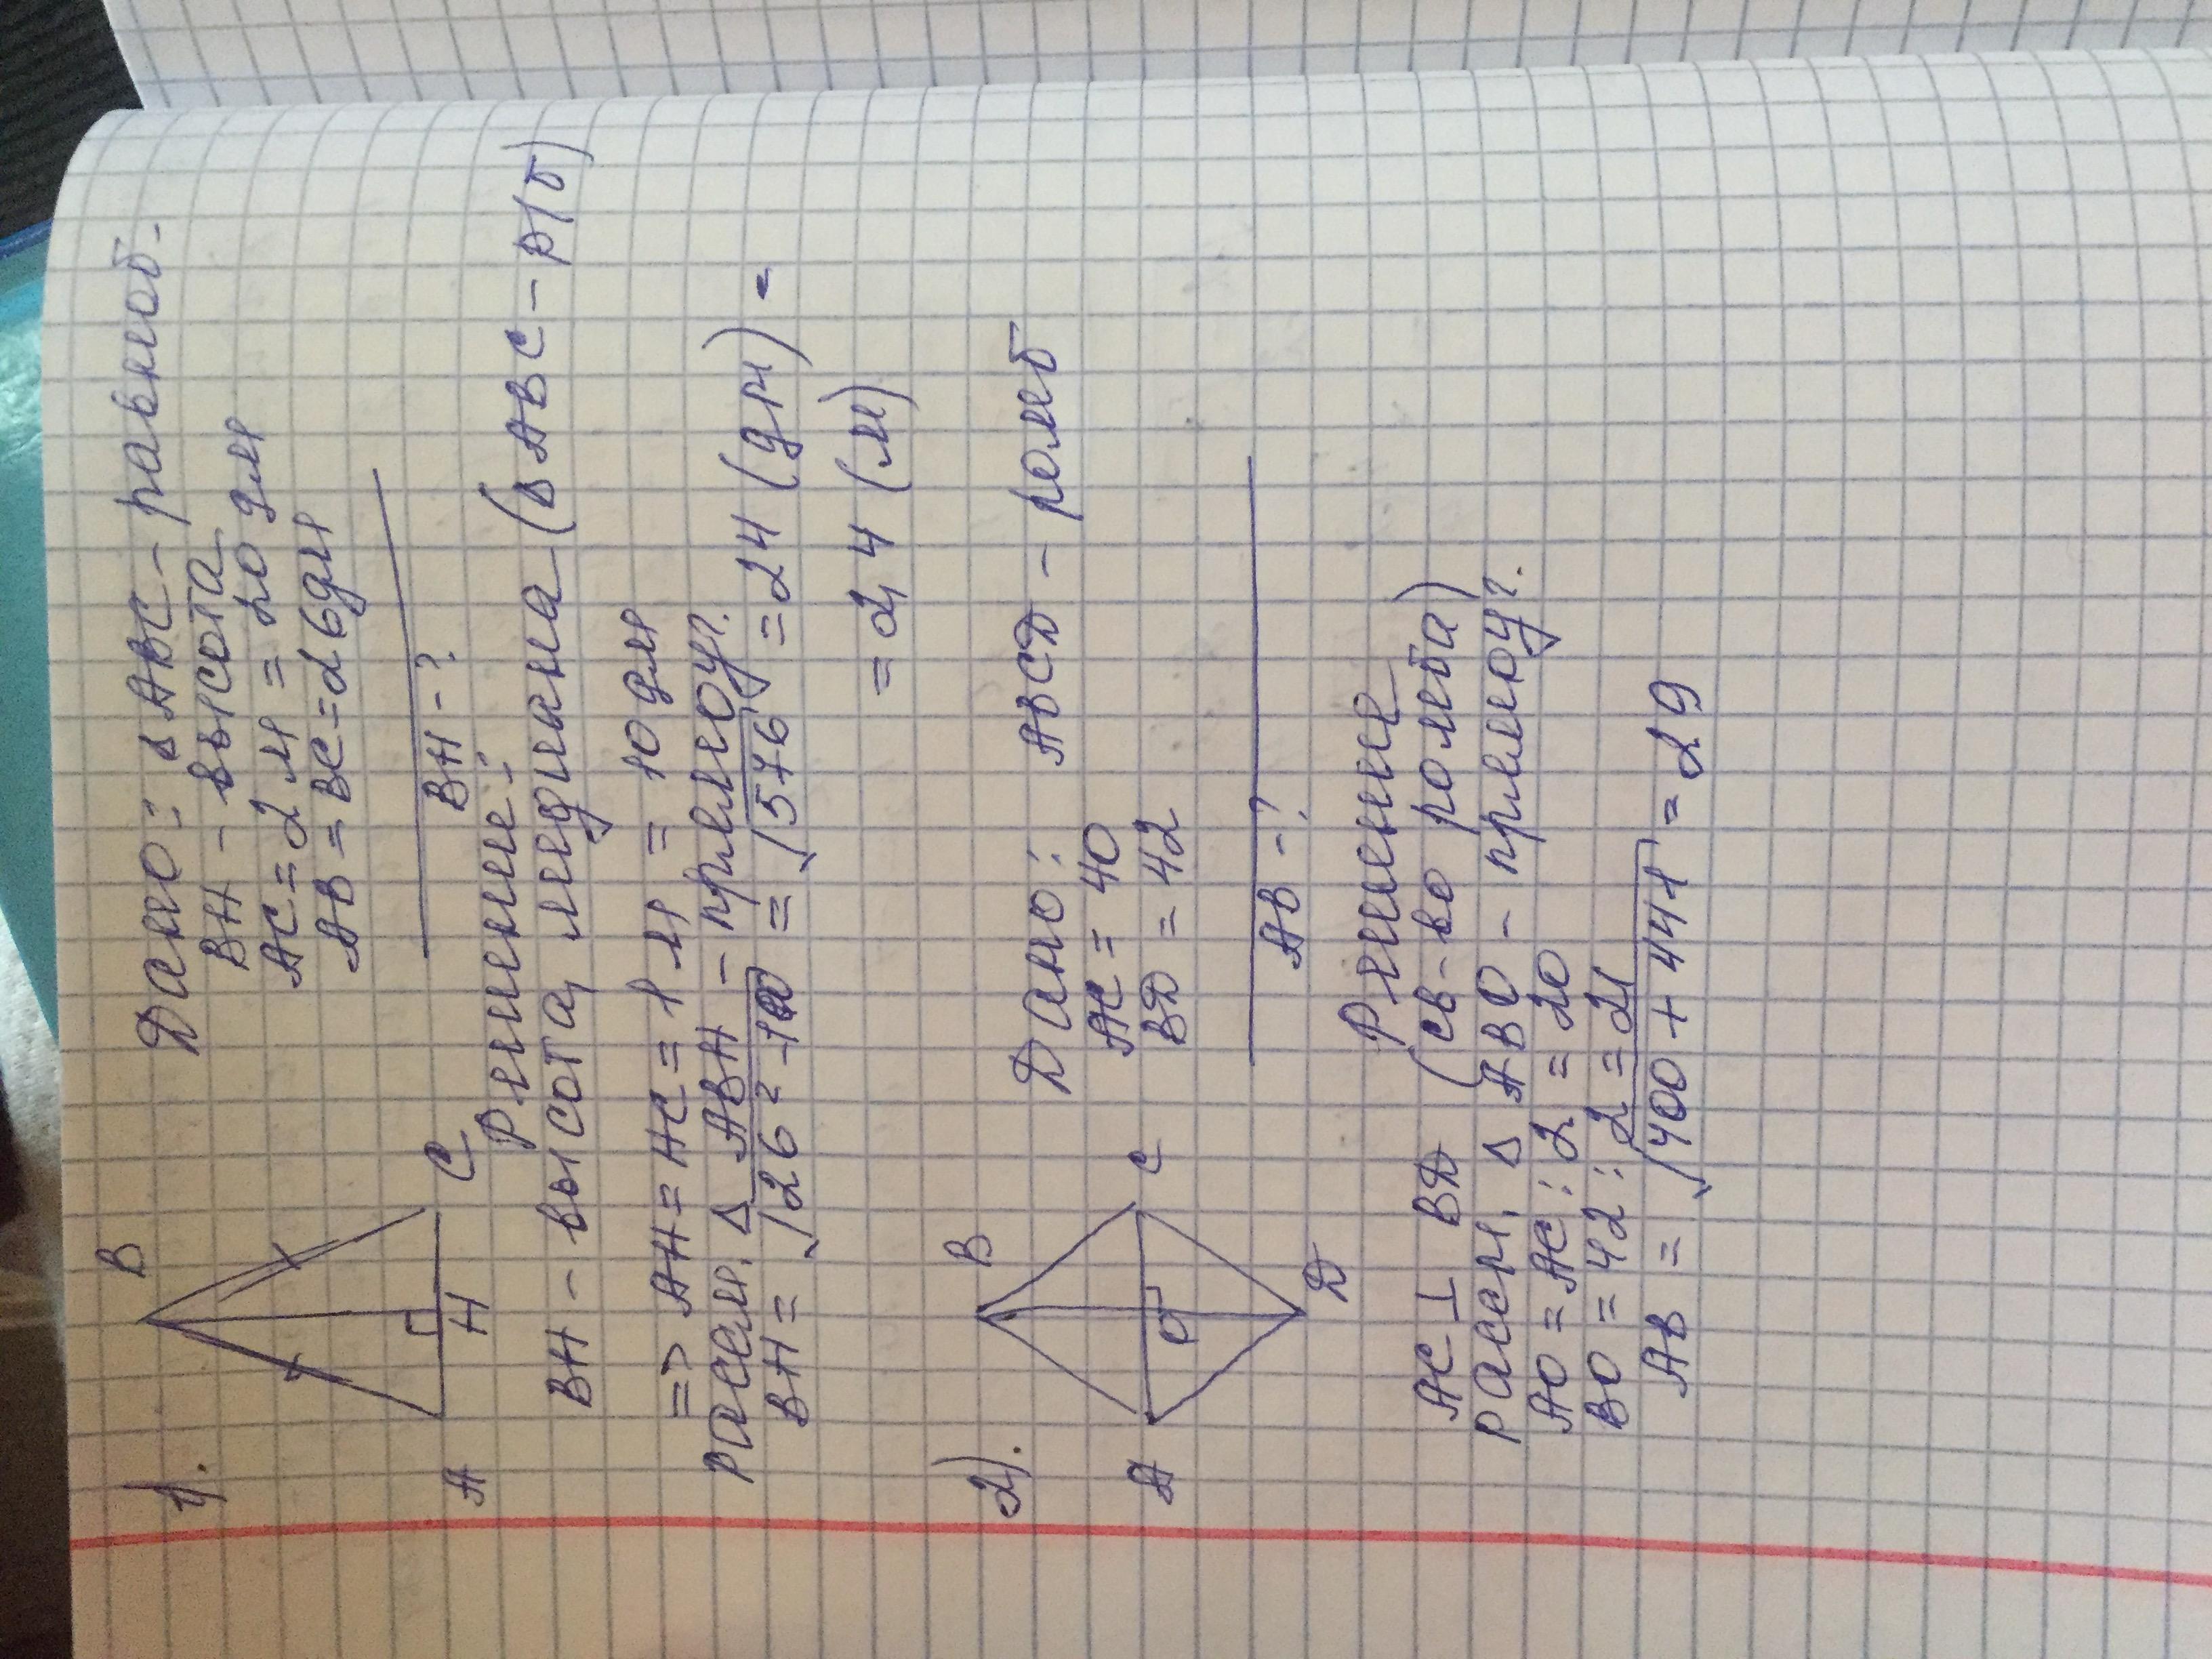 1).
B
A
H
C
Дано: Δ ABC - равноб.
BH - высота
AC = 2 м = 20 дм
AB = BC = 26 дм
BH - ?
Решение:
BH - высота, медиана (Δ ABC - р/б)
=> AH = HC = 1 м = 10 дм
Рассм. Δ ABH - прямоуг.
BH = √26² - 100 = √576 = 24 (дм) =
= 2,4 (м)
2).
B
A
O
C
D
Дано: ABCD - ромб
AC = 40
BD = 42
AB - ?
Решение
AC ⊥ BD (св-во ромба)
Рассм. Δ ABO - прямоуг.
AO = AC : 2 = 20
BO = 42 : 2 = 21
AB = √400 + 441 = 29